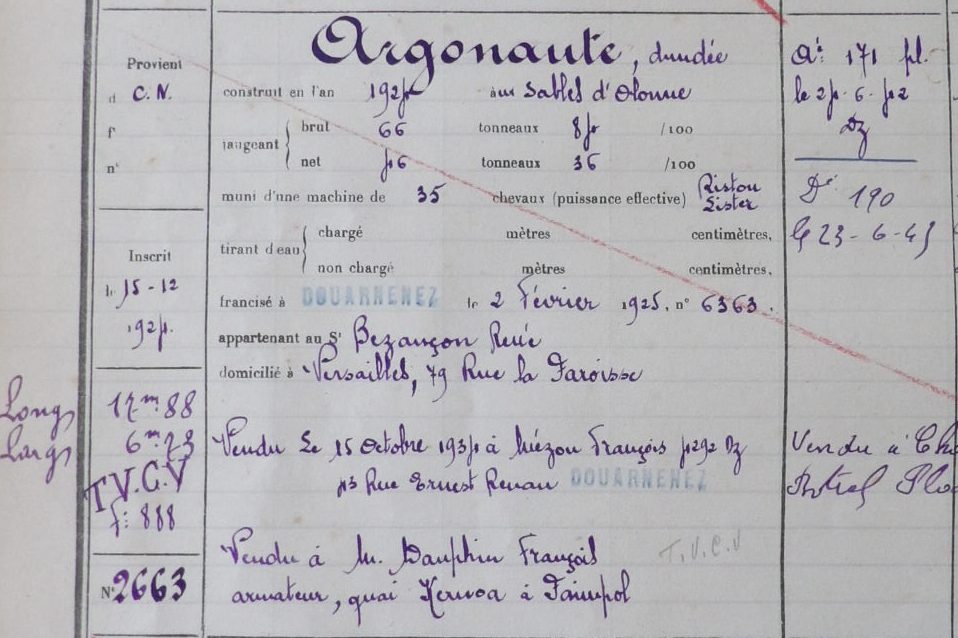 Argonaute, dundée
Provient
d C. N.
f°
n°
construit en l'an 1924 aux Sables d'Olonne
jaugeant brut 66 tonneaux 84 /100
net 46 tonneaux 36 /100
muni d'une machine de 35 chevaux (puissance effective) Piston Lister
tirant d'eau chargé mètres centimètres,
non chargé mètres centimètres,
Inscrit
le 15-12
1924.
francisé à DOUARNENEZ le 2 Février 1925, n° 6363.
appartenant au Sr Bezançon René
domicilié à Versailles, 79 Rue la Paroisse
Long
17m 88
Larg
6m 73
T.V.C.V
f: 888
N° 2663
Vendu le 15 Octobre 1934 à François 4292 Dz
43 Rue Ernest Renan DOUARNENEZ
Vendu à M. Dauphin François T.V.C.V
armateur, quai Kernoa à Paimpol
171 pl.
le 24-6-42
Dz
Dé 190
le 23-6-45
Vendu à